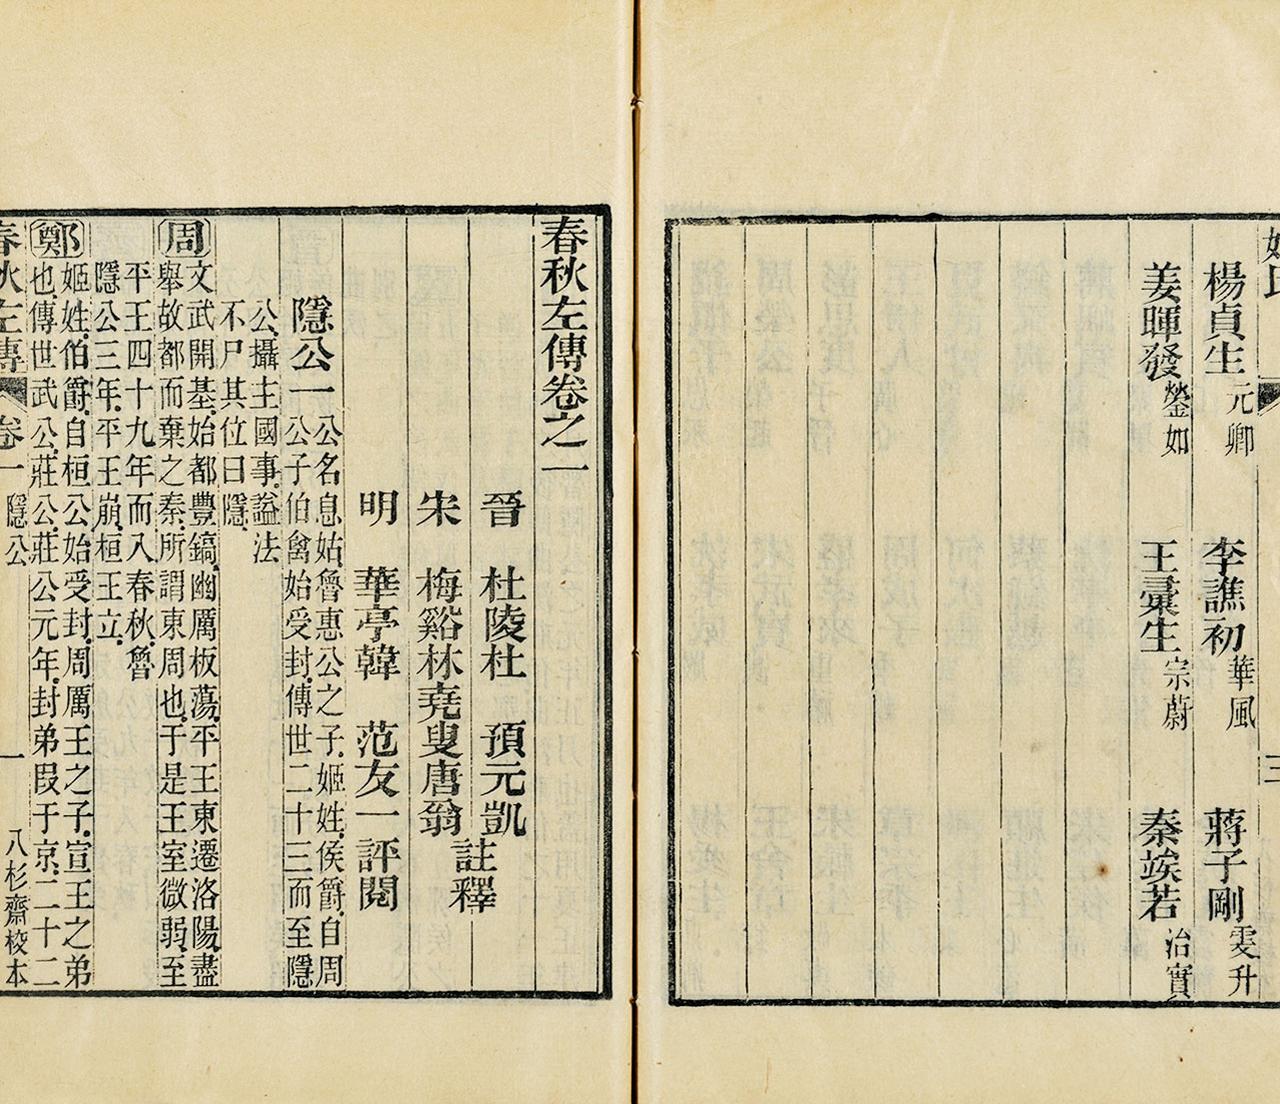 姓氏
三
楊貞生元卿　李譙初華風　蔣子剛雯升
姜暉發鎣如　王彙生宗蔚　秦竢若治實
春秋左傳卷之一
晉　杜陵杜　預元凱
註釋
宋　梅谿林堯叟唐翁
明　華亭韓　范友一評閱
隱公一
公名息姑魯惠公之子姬姓侯爵自周
公子伯禽始受封傳世二十三而至隱
公攝主國事謚法
不尸其位曰隱
周
文武開基始都豐鎬幽厲板蕩平王東遷洛陽盡
舉故都而棄之秦所謂東周也于是王室微弱至
平王四十九年而入春秋魯
隱公三年平王崩桓王立
鄭
姬姓伯爵自桓公始受封周厲王之子宣王之弟
也傳世武公莊公莊公元年封弟段于京二十二
春秋左傳　卷一　隱公　一　八杉齋校本